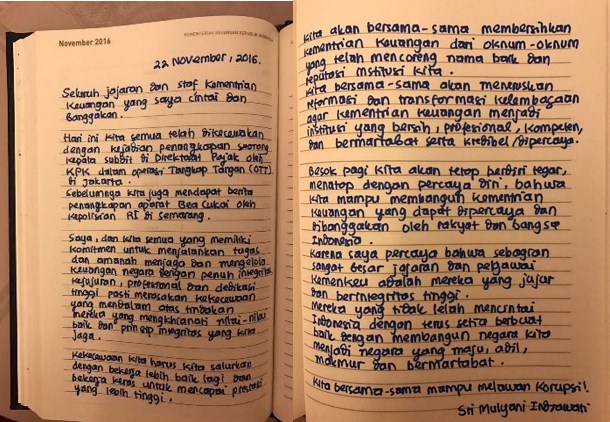 November 2016
KEMENTERIAN KEUANGAN REPUBLIK INDONESIA
22 November, 2016.
Seluruh jajaran dan staf Kementrian
Keuangan yang saya cintai dan
banggakan.
Hari ini kita semua telah dikecewakan
dengan kejadian penangkapan seorang
kepala subdit di Direktorat Pajak oleh
KPK dalam operasi Tangkap Tangan (OTT)
di Jakarta.
Sebelumnya kita juga mendapat berita
penangkapan aparat Bea Cukai oleh
Kepolisian RI di Semarang.
Saya, dan kita semua yang memiliki
komitmen untuk menjalankan tugas
dan amanah menjaga dan mengelola
keuangan negara dengan penuh integritas
kejujuran, profesional dan dedikasi
tinggi pasti merasakan kekecewaan
yang mendalam atas tindakan
mereka yang mengkhianati nilai-nilai
baik dan prinsip integritas yang kita
jaga.
Kekecewaan kita harus kita salurkan
dengan bekerja lebih baik lagi dan
bekerja keras untuk mencapai prestasi
yang lebih tinggi.
Kita akan bersama-sama membersihkan
Kementrian Keuangan dari oknum-oknum
yang telah mencoreng nama baik dan
reputasi institusi kita.
Kita bersama-sama akan meneruskan
reformasi dan transformasi kelembagaan
agar Kementrian Keuangan menjadi
institusi yang bersih, profesional, kompeten,
dan bermartabat serta kredibel/dipercaya.
Besok pagi kita akan tetap berdiri tegar,
menatap dengan percaya diri, bahwa
kita mampu membangun Kementrian
Keuangan yang dapat dipercaya dan
dibanggakan oleh rakyat dan bangsa
Indonesia.
Karena saya percaya bahwa sebagian
sangat besar jajaran dan pegawai
Kemenkeu adalah mereka yang jujur
dan berintegritas tinggi.
Mereka yang tidak lelah mencintai
Indonesia dengan terus setia berbuat
baik dengan membangun negara kita
menjadi negara yang maju, adil,
makmur dan bermartabat.
Kita bersama-sama mampu melawan korupsi!
Sri Mulyani Indrawati